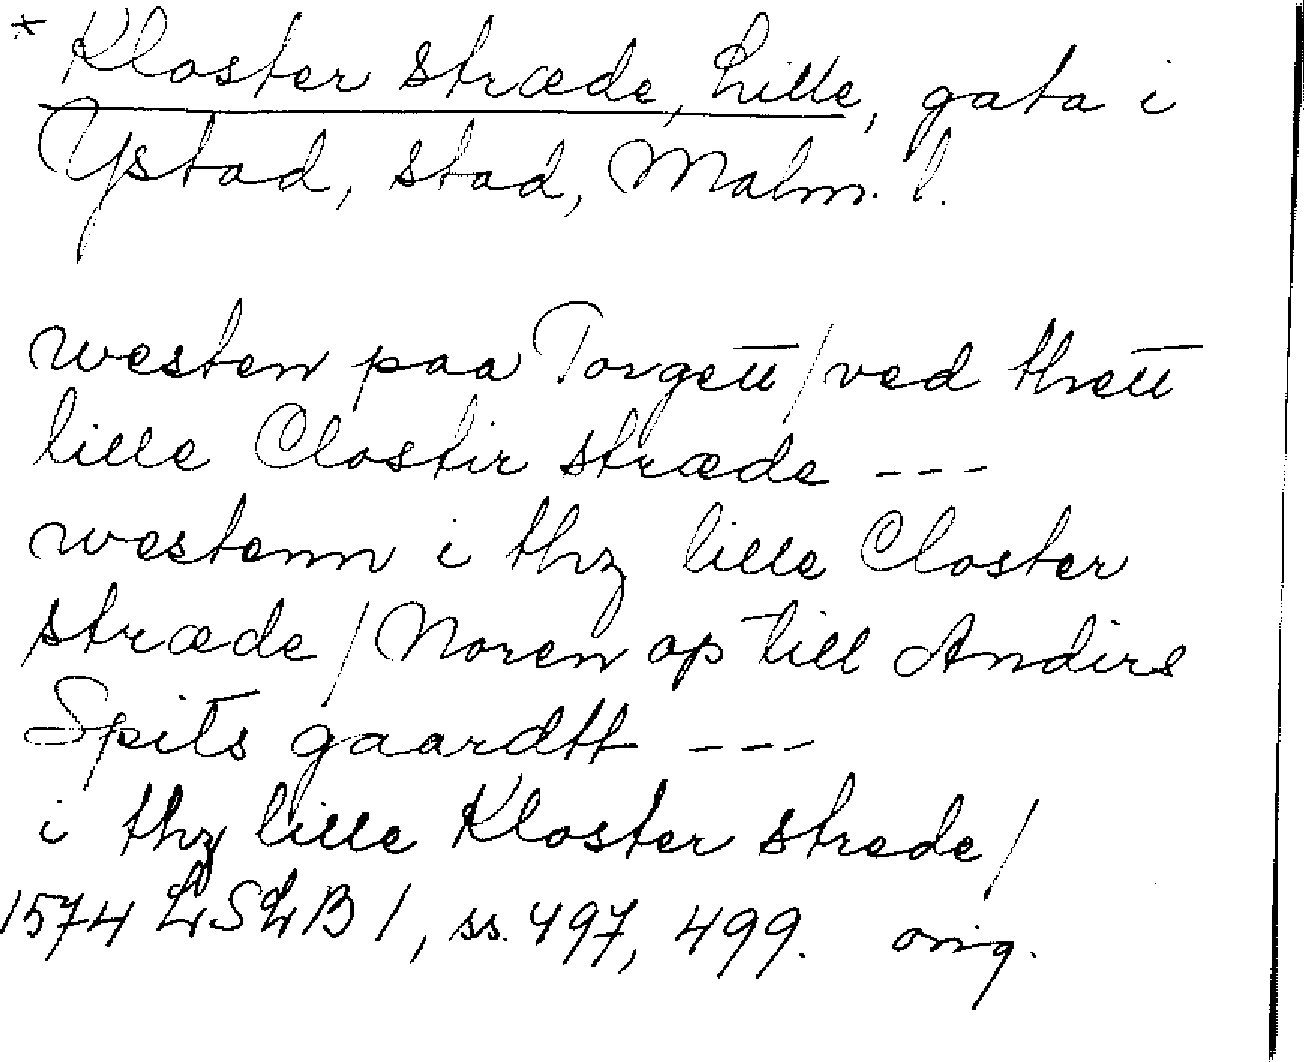 * Kloster stræde, Lille, gata i
Ystad, stad, Malm. l.
westen paa Torgett / ved thett
lille Clostir stræde ---
westenn i thz lille Closter
stræde / Noren op till Andirs
Spits gaardtt ---
i thz lille Kloster strede /
1574 LSLB 1, ss. 497, 499. orig.